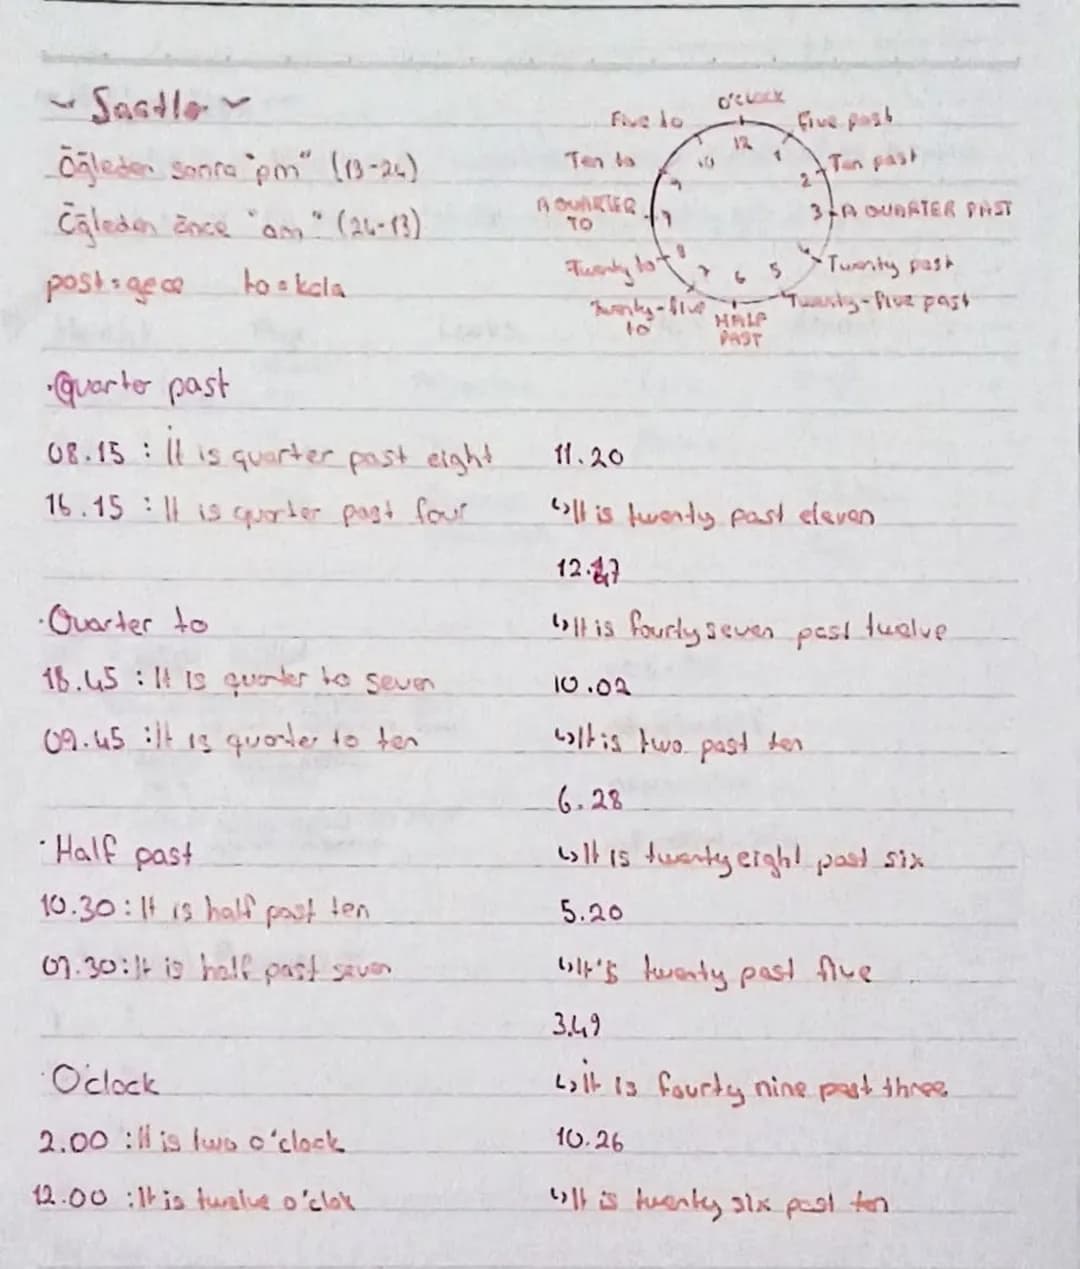 ~ Saatler ~
Öğleden sonra "pm" (13-24)
Öğleden önce "am" (24-13)
past = geçe to = kala
O'CLOCK
Five to
Five past
Ten to
Ten past
A QUARTER TO
A QUARTER PAST
Twenty to
Twenty past
Twenty-five to
Twenty-five past
HALF PAST
12
1
2
3
4
5
6
7
8
9
9
10
·Quarter past
08.15 : It is quarter past eight
16.15 : It is quarter past four
·Quarter to
18.45 : It is quarter to seven
09.45 : It is quarter to ten
·Half past
10.30 : It is half past ten
07.30 : It is half past seven
·O'clock
2.00 : It is two o'clock
12.00 : It is twelve o'clok
11.20
↳ It is twenty past eleven
12.47
↳ It is fourty seven past twelve
10.02
↳ It is two past ten
6.28
↳ It is twenty eight past six
5.20
↳ It's twenty past five
3.49
↳ it is fourty nine past three
10.26
↳ It is twenty six past ten